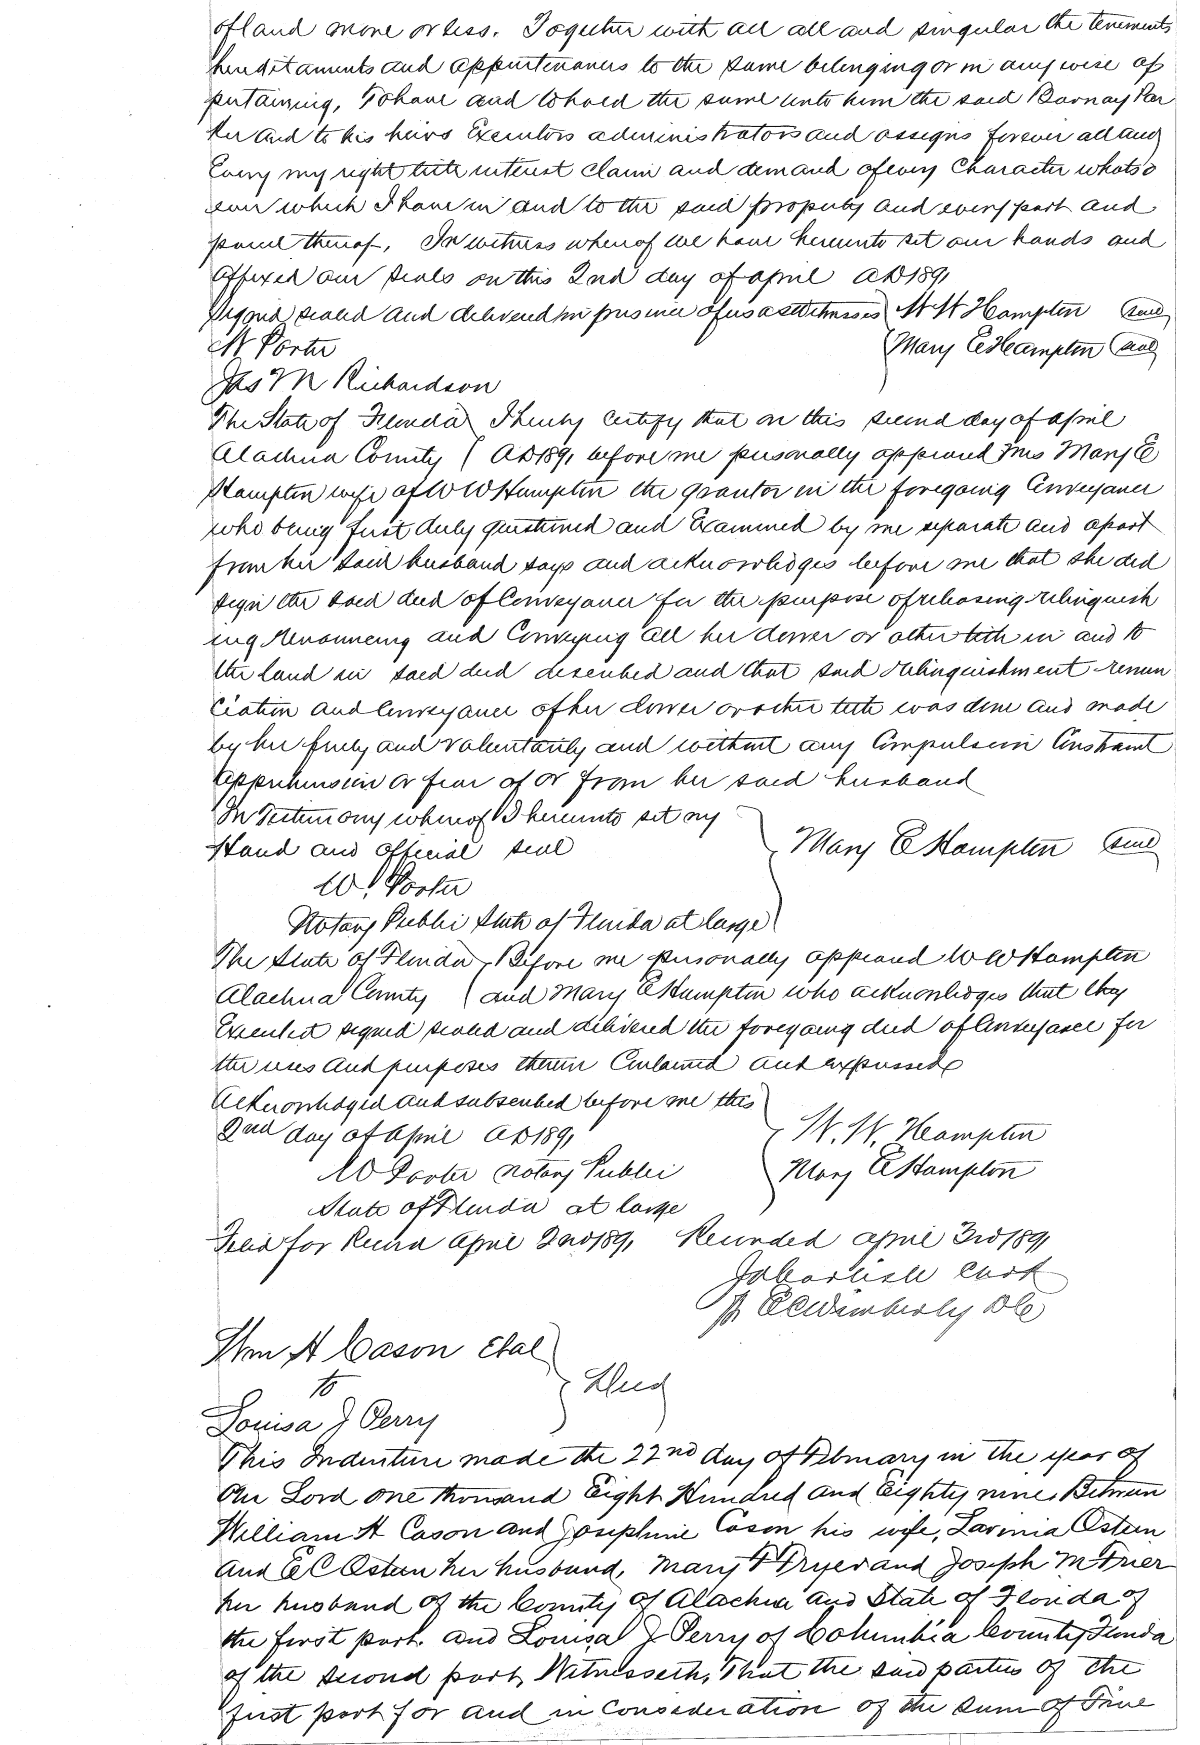 of land more or less. Together with all all and singular the tenements
hereditaments and appurtenances to the same belonging or in any wise ap
pertaining. To have and to hold the same unto him the said Barnay Par
ker and to his heirs Executors administrators and assigns forever all and
Every my right title interest claim and demand of every Character whatso
ever which I have in and to the said property and every part and
parcel thereof. In witness whereof we have hereunto set our hands and
affixed our seals on this 2nd day of april AD 1891
Signed sealed and delivered in presence of us as witnesses W W Hampton seal
W Porter Mary E Hampton seal
Jas M Richardson
The State of Florida I hereby certify that on this second day of april
Alachua County AD 1891 before me personally appeared Mrs Mary E
Hampton wife of W W Hampton the grantor in the foregoing Conveyance
who being first duly questioned and Examined by me separate and apart
from her said husband says and acknowledges before me that she did
sign the said deed of Conveyance for the purpose of releasing relinquish
ing Renouncing and Conveying all her dower or other title in and to
the land in said deed described and that said relinquishment renun
ciation and Conveyance of her dower or other title was done and made
by her freely and voluntarily and without any Compulsion Constraint
apprehension or fear of or from her said husband
In Testimony whereof I hereunto set my
Hand and official seal Mary E Hampton seal
W. Porter
Notary Public State of Florida at large
The State of Florida Before me personally appeared W W Hampton
Alachua County and Mary E Hampton who acknowledges that they
Executed signed sealed and delivered the foregoing deed of Conveyance for
the uses and purposes therein Contained and expressed
Acknowledged and subscribed before me this
2nd day of April AD 1891 W. W. Hampton
W Porter Notary Public Mary E Hampton
State of Florida at large
Filed for Record April 2nd 1891 Recorded april 3rd 1891
J A Carlisle Clerk
Pr E C Wimberly D C
Wm H Cason Etal
to Deed
Louisa J Perry
This Indenture made the 22nd day of February in the year of
Our Lord one thousand Eight Hundred and Eighty nine Between
William H Cason and Josephine Cason his wife, Lavinia Osteen
and E C Osteen her husband, Mary F Fryer and Joseph M Frier
her husband of the County of Alachua and State of Florida of
the first part. and Louisa J Perry of Columbia County Florida
of the second part, Witnesseth, That the said parties of the
first part for and in consideration of the sum of Five